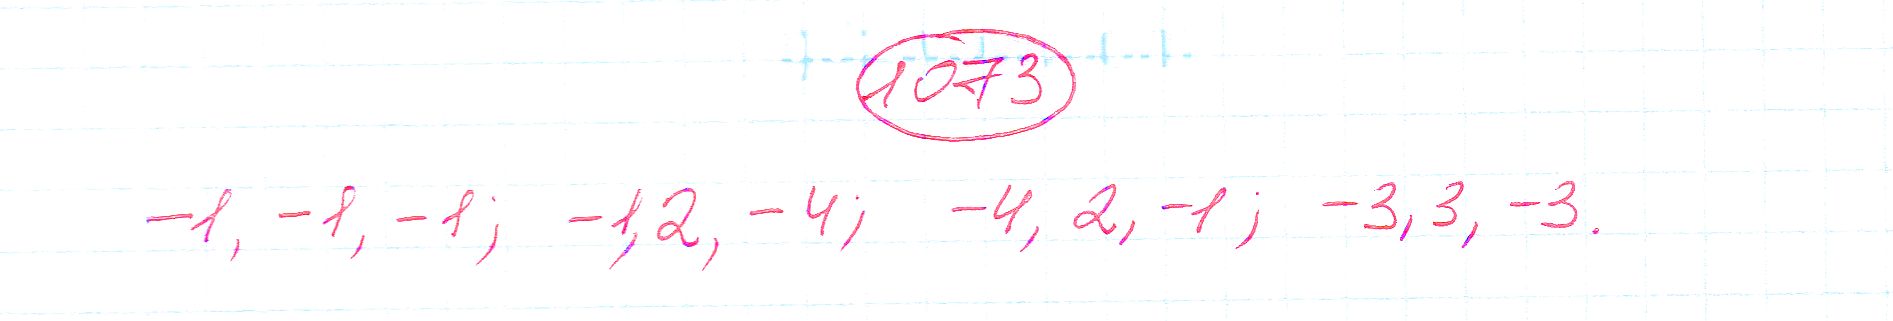 1073
-1, -1, -1; -1, 2, -4; -4, 2, -1; -3, 3, -3.